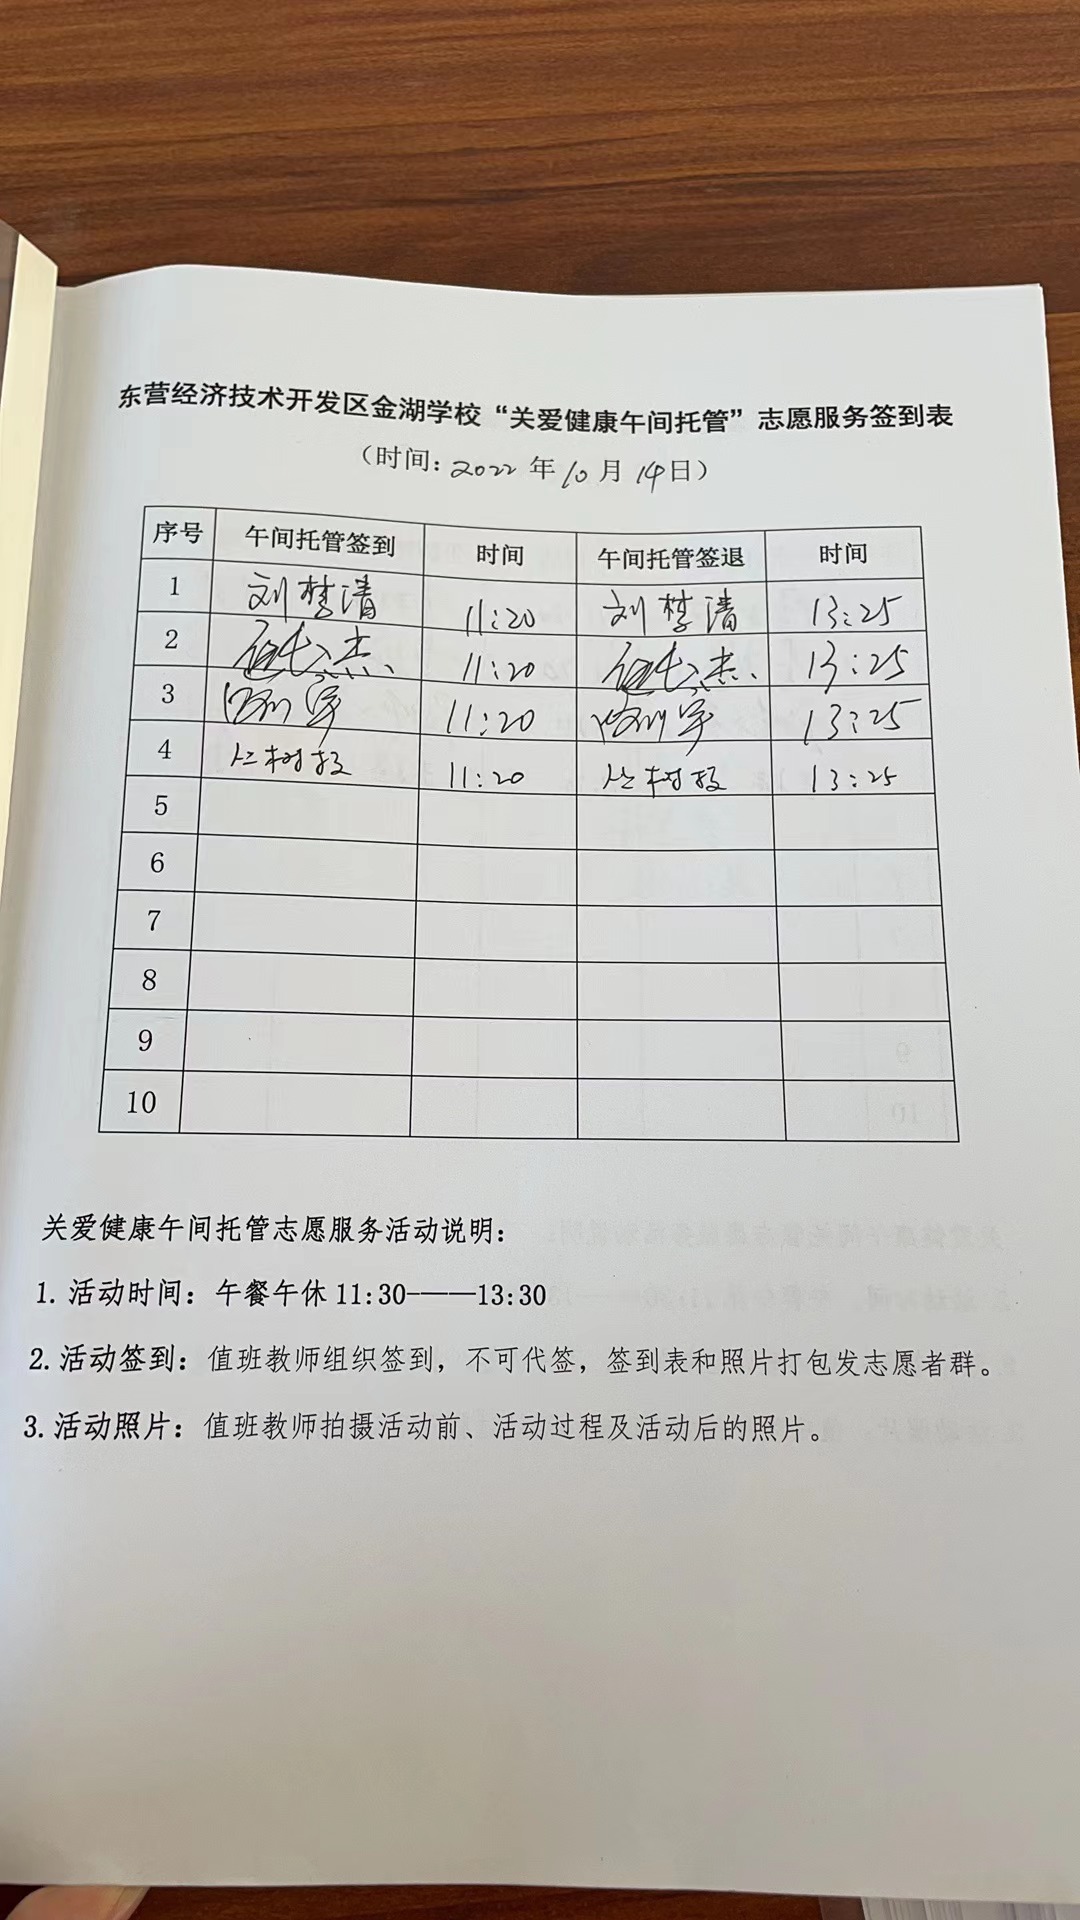 东营经济技术开发区金湖学校“关爱健康午间托管”志愿服务签到表
（时间：2022 年 10 月 14日）
序号 午间托管签到 时间 午间托管签退 时间
1 刘梦清 11:20 刘梦清 13:25
2 11:20 13:25
3 11:20 13:25
4 11:20 13:25
5
6
7
8
9
10
关爱健康午间托管志愿服务活动说明：
1. 活动时间：午餐午休 11:30-——13:30
2. 活动签到：值班教师组织签到，不可代签，签到表和照片打包发志愿者群。
3. 活动照片：值班教师拍摄活动前、活动过程及活动后的照片。